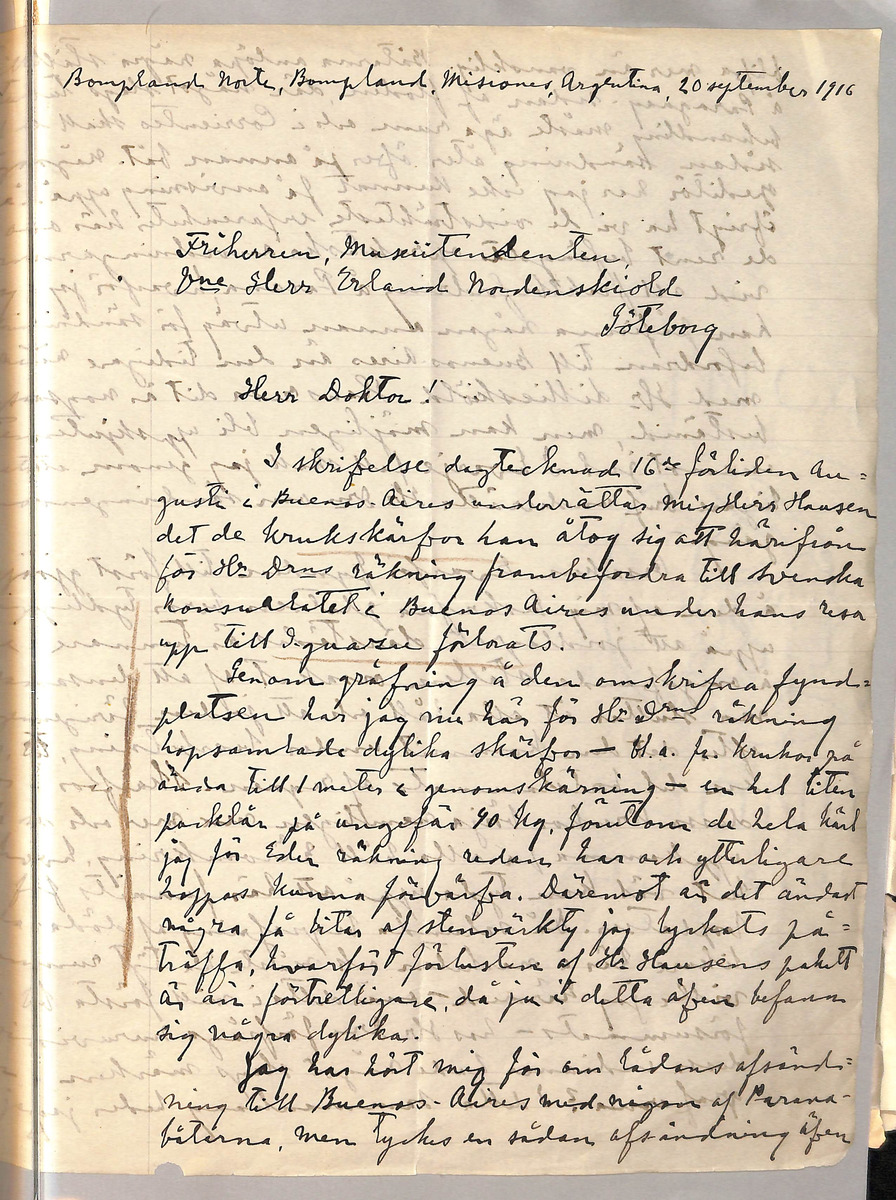 Bompland Norte, Bompland, Misiones, Argentina, 20 september 1916
Friherren, Museiitendenten
Vne Herr Erland Nordenskiöld
Göteborg
Herr Doktor!
I skrifvelse dagtecknad 16de förliden Au=
gusti i Buenos-Aires underrättar mig Herr Hansen
det de krukskärfvor han åtog sig att härifrån
för Hr Drns räkning frambefordra till svenska
konsulatet i Buenos Aires under hans resa
upp till Iguassu förlorats.
Genom gräfning å den omskrifna fynd=
platsen har jag nu här för Hr Drns räkning
hopsamlade dylika skärfvor — bl. a. fr. krukor på
ända till 1 meter i genomskärning — en hel liten
packlår på ungefär 40 kg, förutom de hela kärl
jag för Eder räkning redan har och ytterligare
hoppas kunna förvärfva. Däremot är det endast
några få bitar af stenvärktyg jag lyckats på=
träffa, hvarför förlusten af Hr Hansens pakett
är än förtretligare, då ju i detta äfven befann
sig några dylika.
Jag har hört mig för om lådans afsänd=
ning till Buenos-Aires med någon af Parana-
båtarna, men tyckes en sådan afsändning äfven